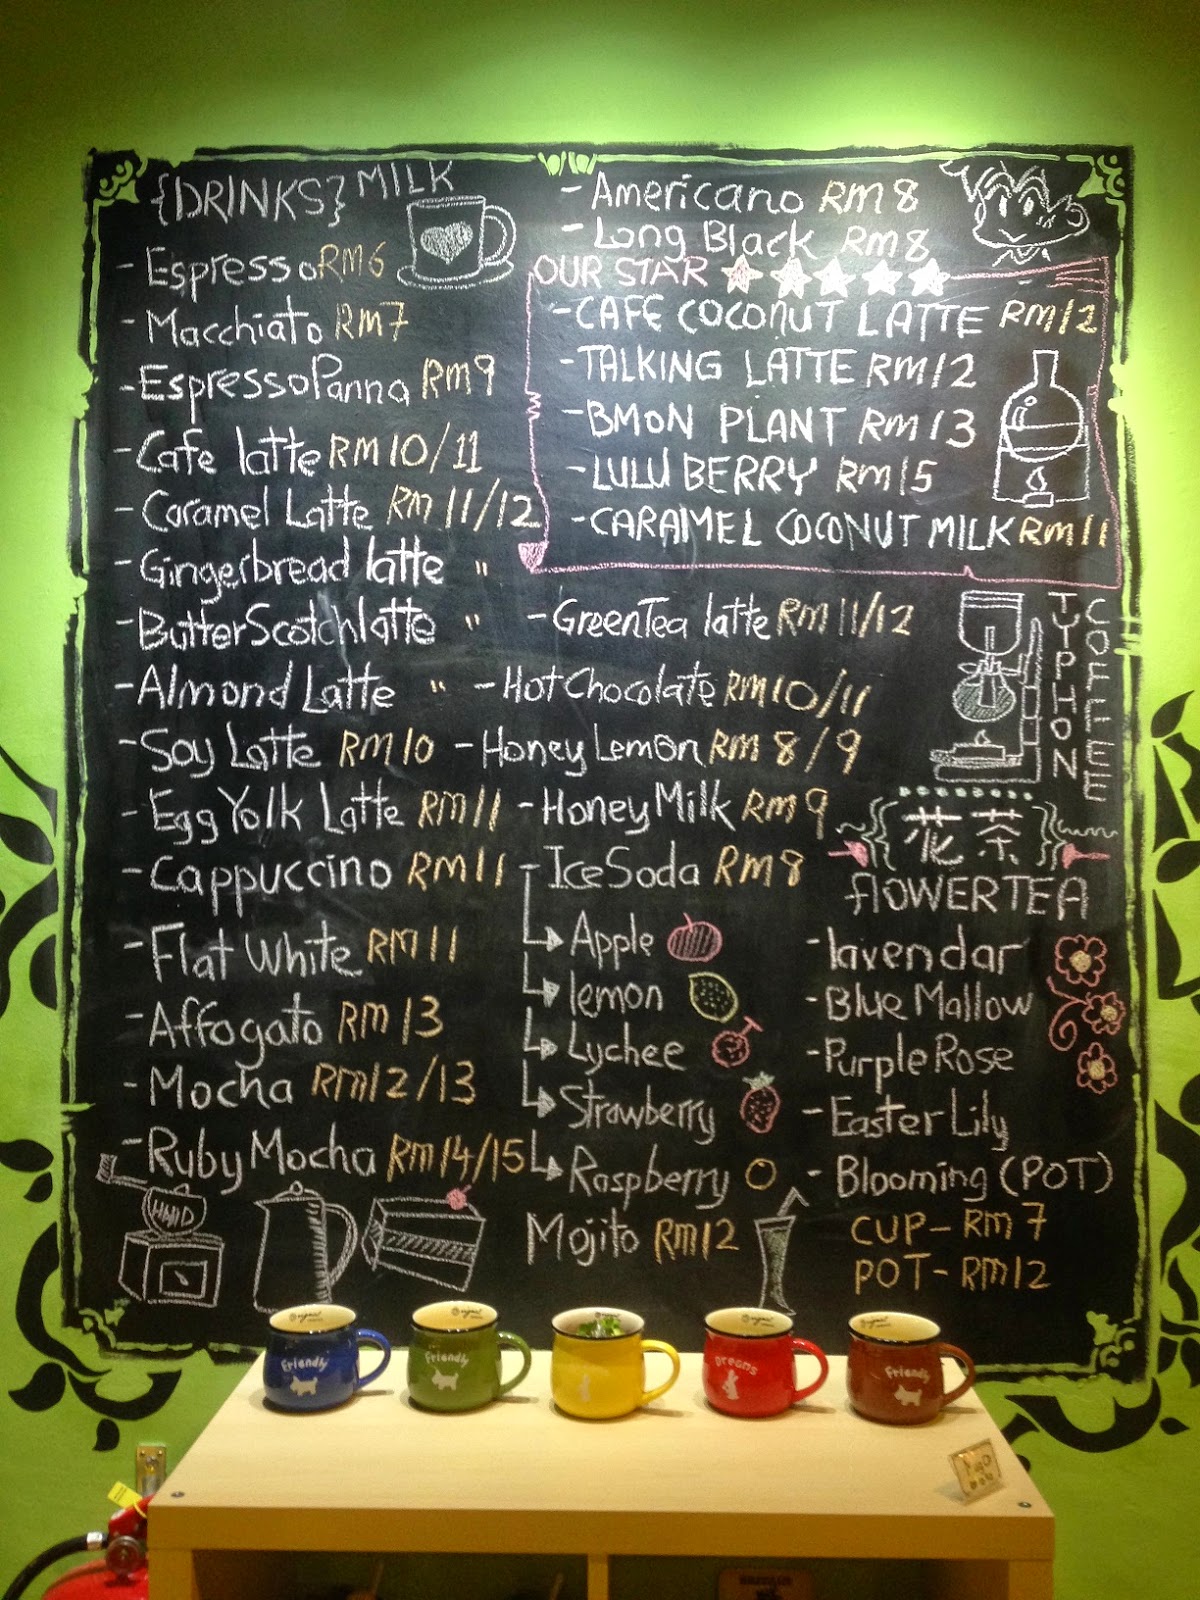 {DRINKS} MILK
- Espresso RM6
- Macchiato RM7
- Espresso Panna RM9
- Cafe latte RM10/11
- Caramel Latte RM11/12
- Gingerbread latte "
- Butter Scotch latte "
- Almond Latte "
- Soy Latte RM10
- Egg Yolk Latte RM11
- Cappuccino RM11
- Flat White RM11
- Affogato RM13
- Mocha RM12/13
- Ruby Mocha RM14/15
- Americano RM8
- Long Black RM8
OUR STAR
- CAFE COCONUT LATTE RM12
- TALKING LATTE RM12
- BMON PLANT RM13
- LULU BERRY RM15
- CARAMEL COCONUT MILK RM11
- GreenTea latte RM11/12
- Hot Chocolate RM10/11
- Honey Lemon RM8/9
- Honey Milk RM9
- Ice Soda RM8
Apple
lemon
Lychee
Strawberry
Raspberry
Mojito RM12
TYPHON
COFFEE
{花茶}
flOWERTEA
- lavendar
- Blue Mallow
- Purple Rose
- Easter Lily
- Blooming (POT)
CUP - RM7
POT - RM12
Friendly
Friendly
Dreams
Friendly